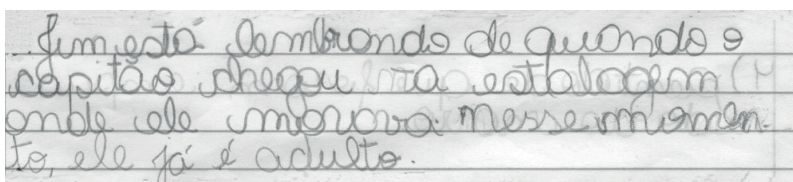 Jim está lembrando de quando o
capitão chegou na estalagem
onde ele morava. Nesse momen-
to, ele já é adulto.